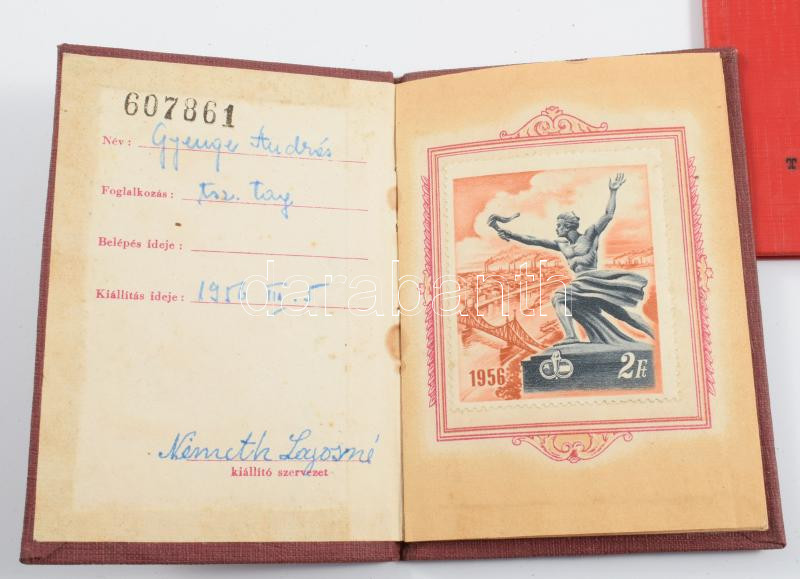 607861
Név: Gyenge András
Foglalkozás: tsz. tag
Belépés ideje:
Kiállítás ideje: 1956 III. 5
Németh Lajosné
kiállító szervezet
1956
2 Ft
T
darabanth